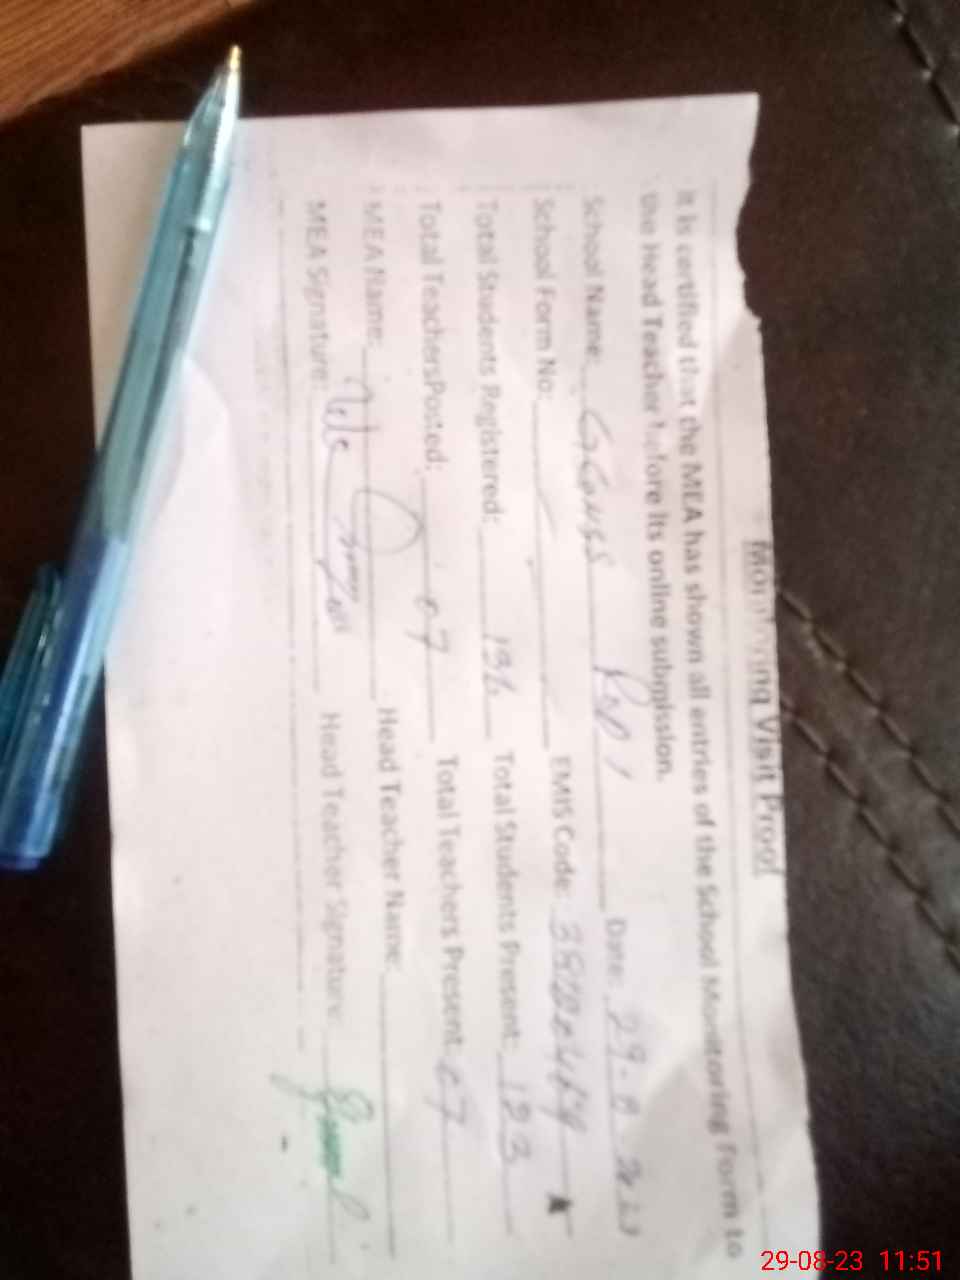 Monitoring Visit Proof
It is certified that the MEA has shown all entries of the School Monitoring Form to
the Head Teacher before its online submission.
School Name: Date: 29-8-2023
School Form No: EMIS Code:
Total Students Registered: 196 Total Students Present: 183
Total TeachersPosted: 07 Total Teachers Present: 07
MEA Name: Head Teacher Name:
MEA Signature: Head Teacher Signature:
29-08-23 11:51